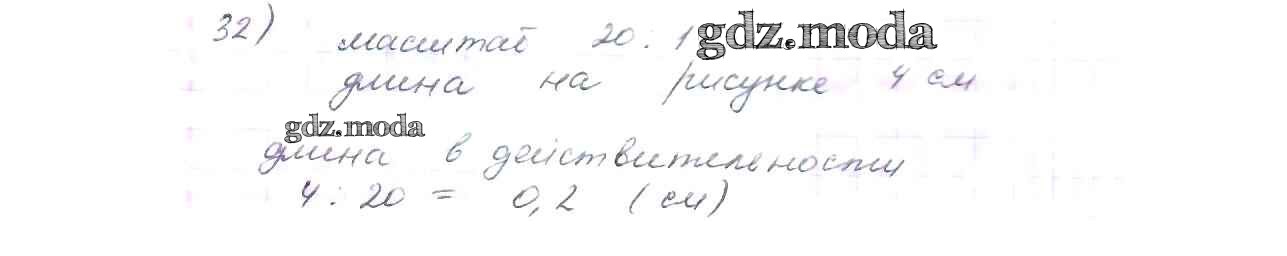 32) масштаб 20 : 1 gdz.moda
длина на рисунке 4 см
gdz.moda
длина в действительности
4 : 20 = 0,2 (см)